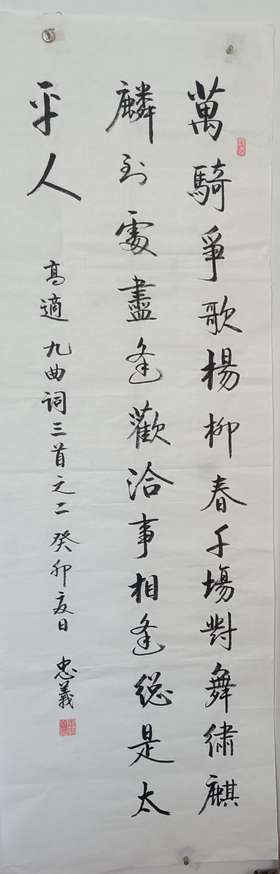 萬騎爭歌楊柳春千場對舞繡麒
麟到處盡逢歡洽事相逢總是太
平人
高適九曲詞三首之二癸卯夏日忠義